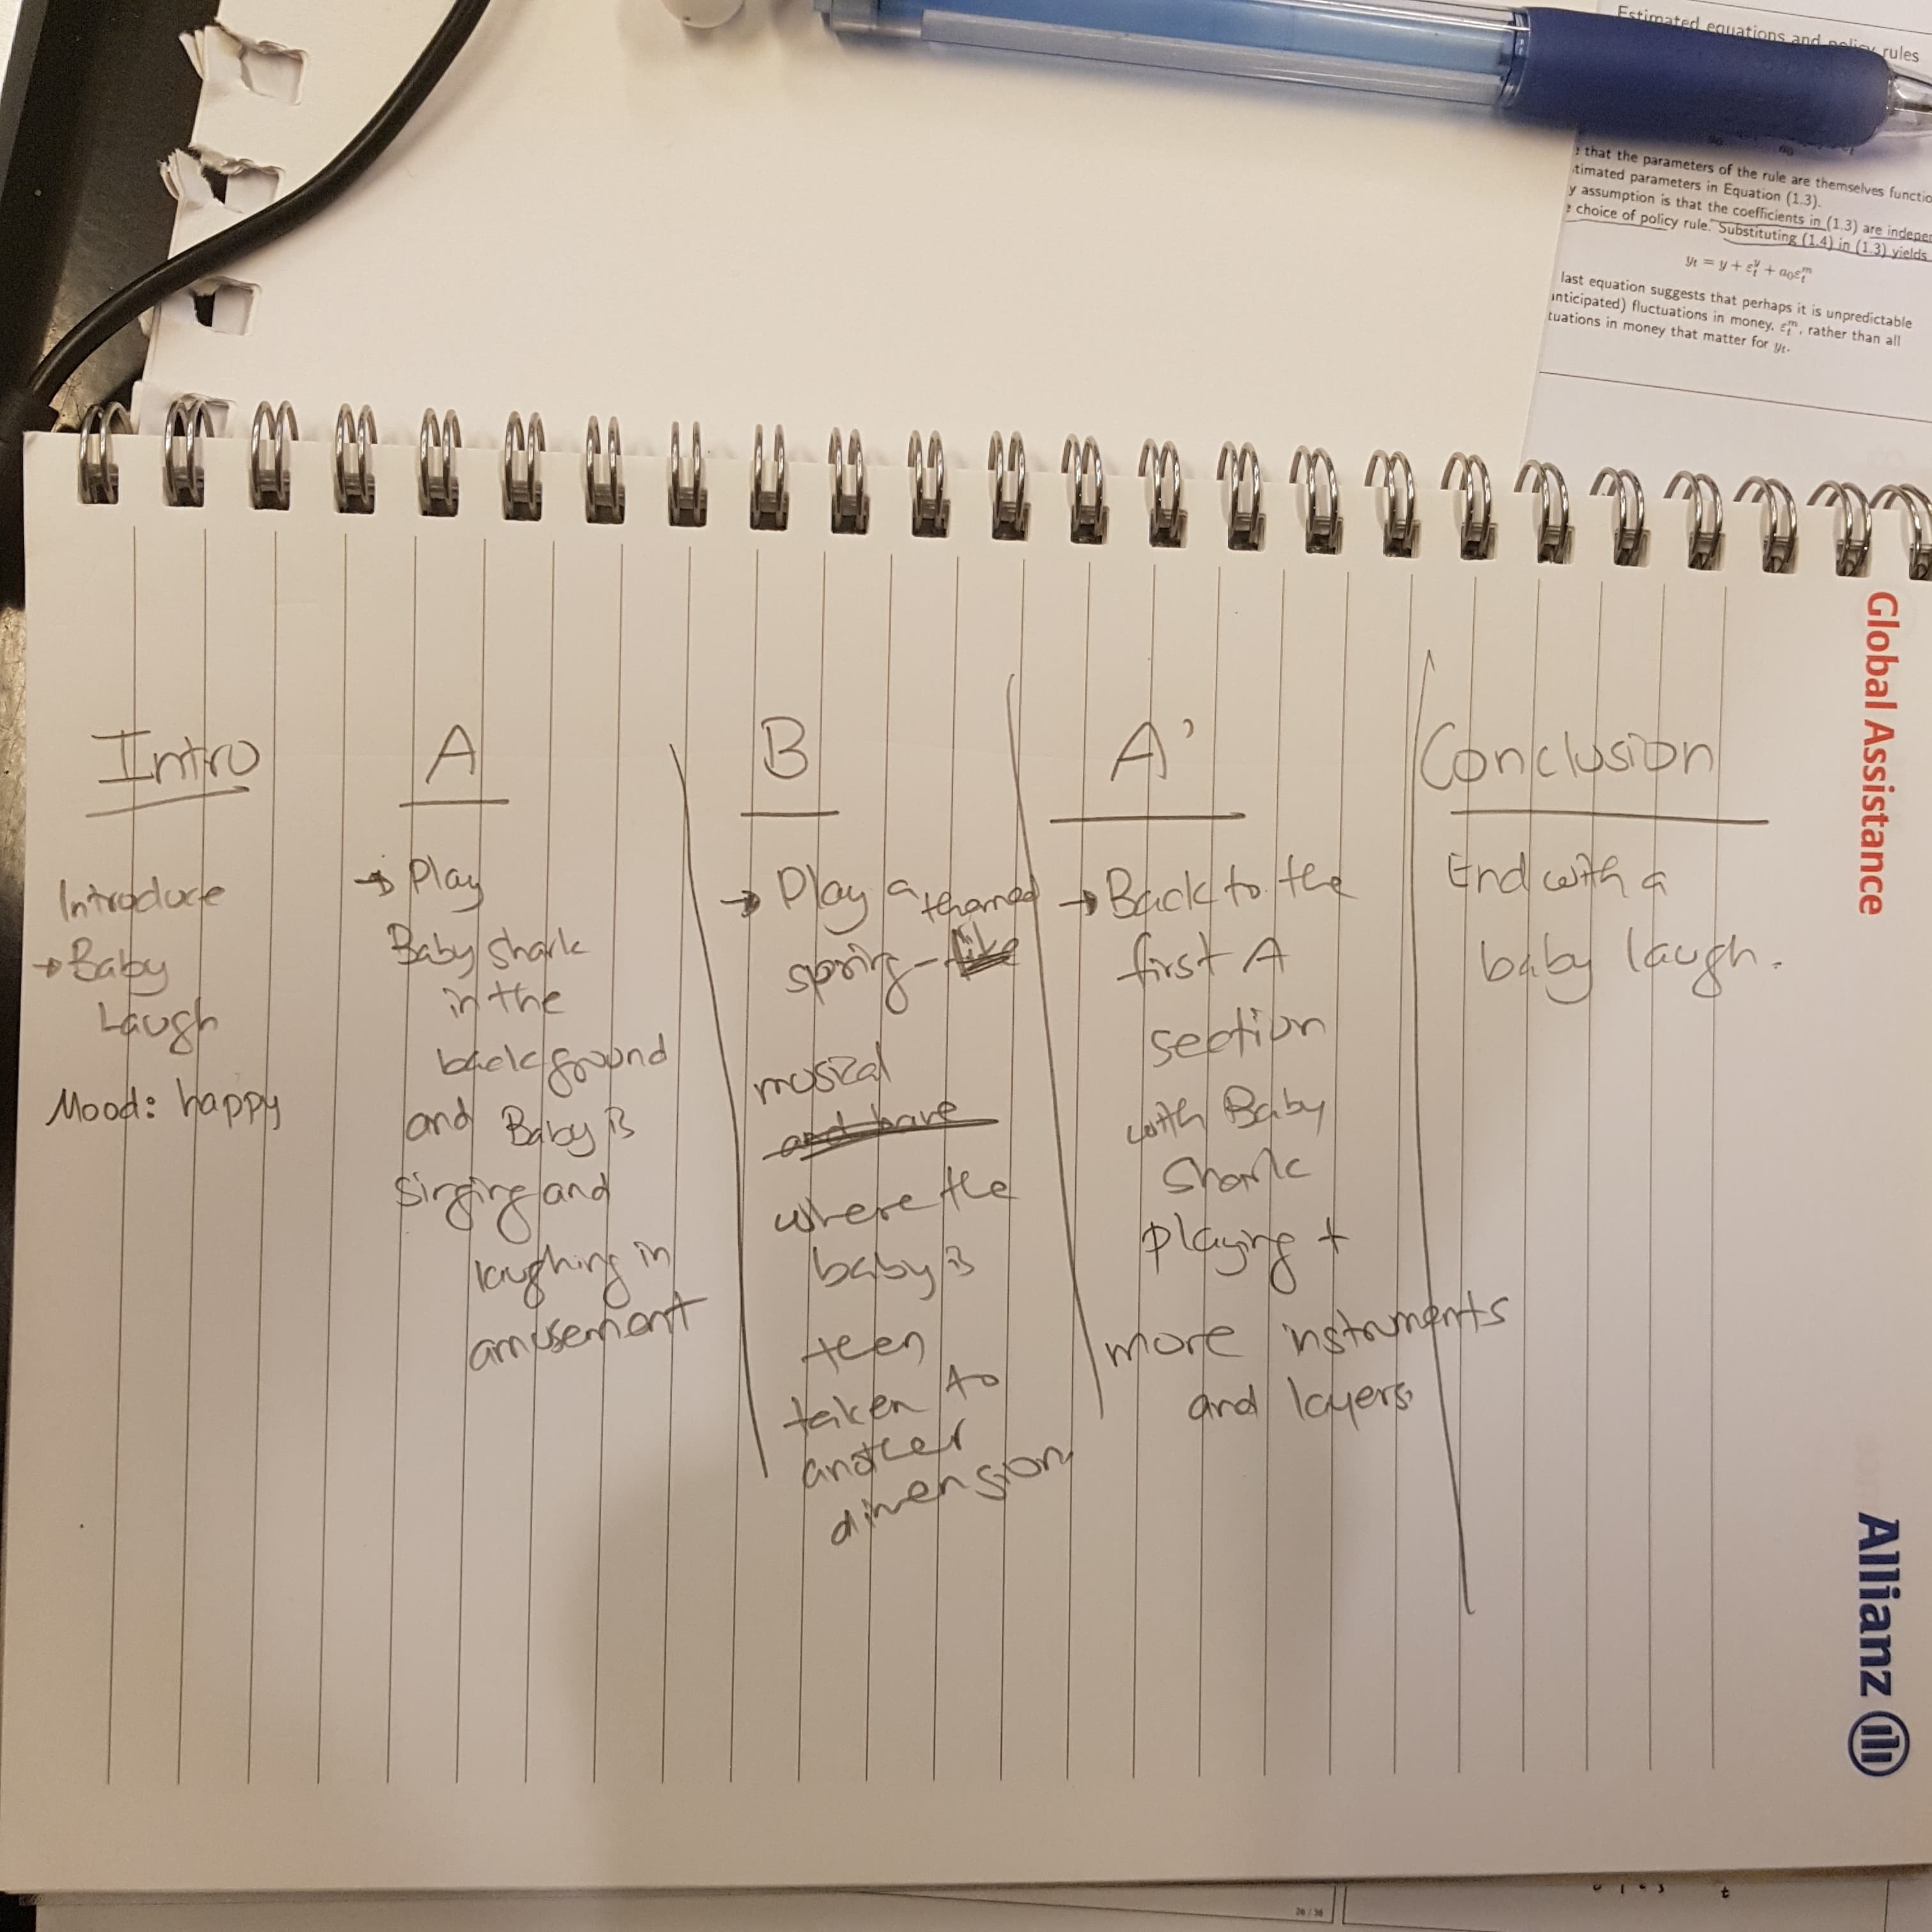 Estimated equations and policy rules
that the parameters of the rule are themselves
timated parameters in Equation (1.3).
y assumption is that the coefficients in (1.3) are
choice of policy rule. Substituting (1.4) in (1.3) yields
yₜ = y + εₜʸ + a₀εₜᵐ
last equation suggests that perhaps it is unpredictable
nticipated) fluctuations in money, εₜᵐ, rather than all
tuations in money that matter for yₜ.
Global Assistance
Allianz
Intro
Introduce
→ Baby
Laugh
Mood: happy
A
→ Play
Baby Shark
in the
background
and Baby is
singing and
laughing in
amusement
B
→ Play a themed
spring-like
musical
and have
where the
baby is
then
taken to
another
dimension
A'
→ Back to the
first A
section
with Baby
Shark
playing +
more instruments
and layers.
Conclusion
End with a
baby laugh.
26 / 38